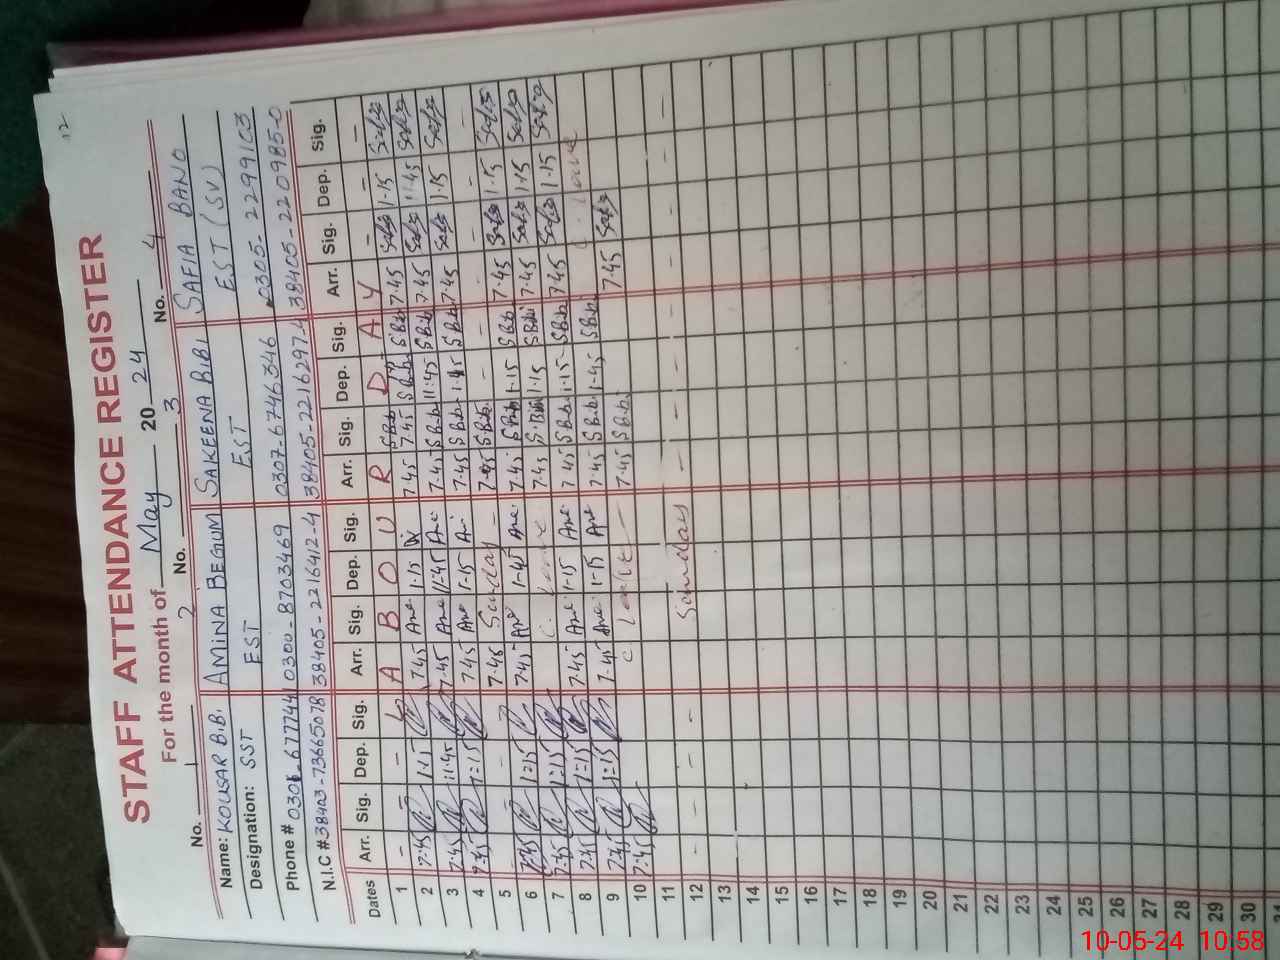 12
STAFF ATTENDANCE REGISTER
For the month of May 2024
No. 1 No. 2 3 No. 4
Name: KOUSAR B.B. AMINA BEGUM SAKEENA BIBI SAFIA BANO
Designation: SST EST EST EST (SV)
Phone # 0300-8703469 0307-6746346 0305-2299103
N.I.C # 38403-73665078 38405-2216412-4 38405-2216297-4 38405-220985-0
Dates Arr. Sig. Dep. Sig. Arr. Sig. Dep. Sig. Arr. Sig. Dep. Sig. Arr. Sig. Dep. Sig.
1 - - - L A B O U R D A Y - - -
2 7:45 1:15 7.45 Ane 1.15 7.45 S.B.b. 7.45 Safia 1.15 Safia
3 7:45 11:45 7.45 Ane 11:45 Ane 7.45 S.B.b. 11:45 S.B.b. 7.45 Safia 11:45 Safia
4 7:45 1:15 7.45 Ane 1-15 7.45 S.B.b. 1.45 S.B.b. 7.45 Safia 1.15 Safia
5 - 7.45 Sunday - 7.45 S.B.b. - - - -
6 7:45 1:15 7.45 Ane 1-45 Ane 7.45 S.B.b. 1.15 S.B.b. 7.45 Safia 1.15 Safia
7 7:45 1:15 C. Leave 7.45 1.15 7.45 Safia 1.15 Safia
8 7:45 1:15 7.45 Ane 1-15 Ane 7.45 S.B.b. 1.15 S.B.b. 7.45 Safia 1.15 Safia
9 7:45 1:15 7.45 Ane 1-15 Ane 7.45 S.B.b. 1.45 S.B.b. C. Leave
10 7:45 C 7.45 S.B.b. 7.45 Safia
11
12 - - - - Sunday - - - - - - -
13
14
15
16
17
18
19
20
21
22
23
24
25
26
27
28
29
30
31
10-05-24 10:58